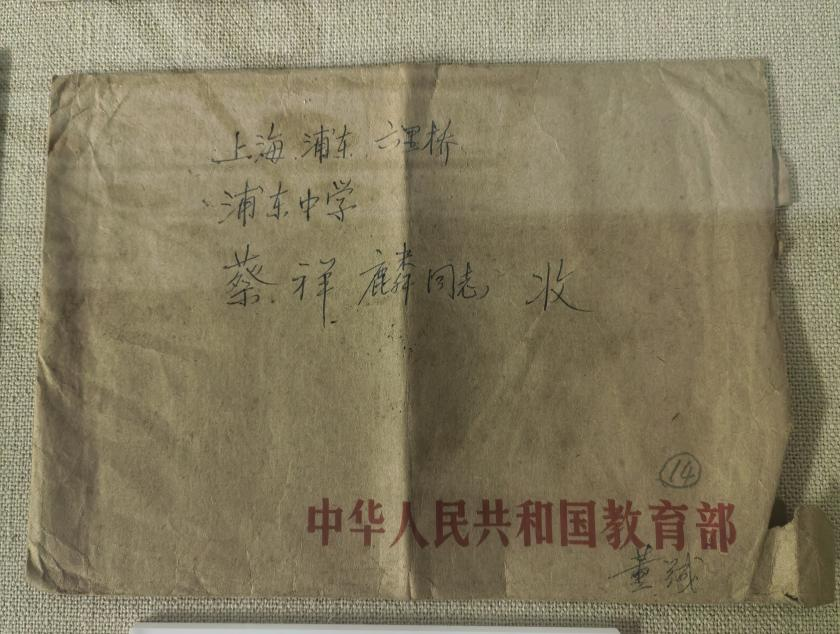 上海 浦东 六里桥
浦东中学
蔡祥麟同志 收
14
中华人民共和国教育部
董